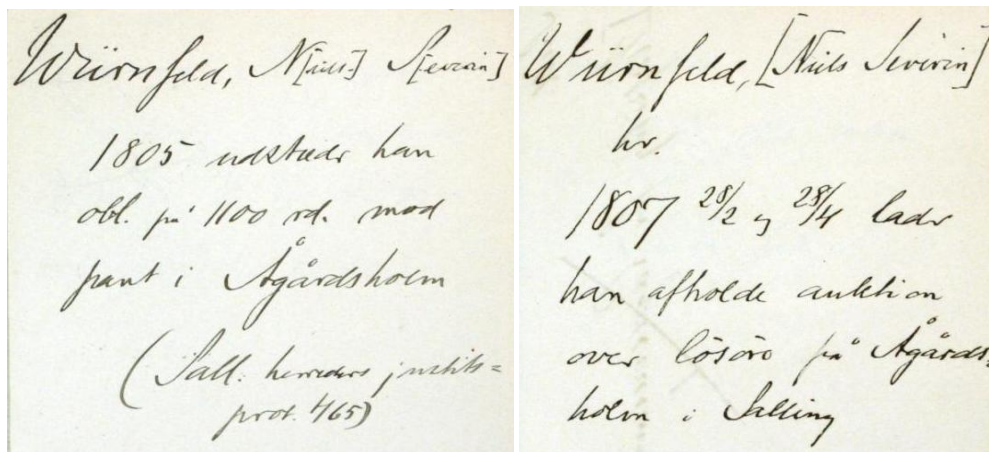 Würnfeld, N[iels] S[everin]
1805 udsteder han
obl. på 1100 rd. mod
pant i Ågårdsholm
(Sall. herreders justits=
prot. 4/65)
Würnfeld, [Niels Severin]
hr.
1807 28/2 og 28/4 lader
han afholde auktion
over lösöre på Ågårds=
holm i Salling